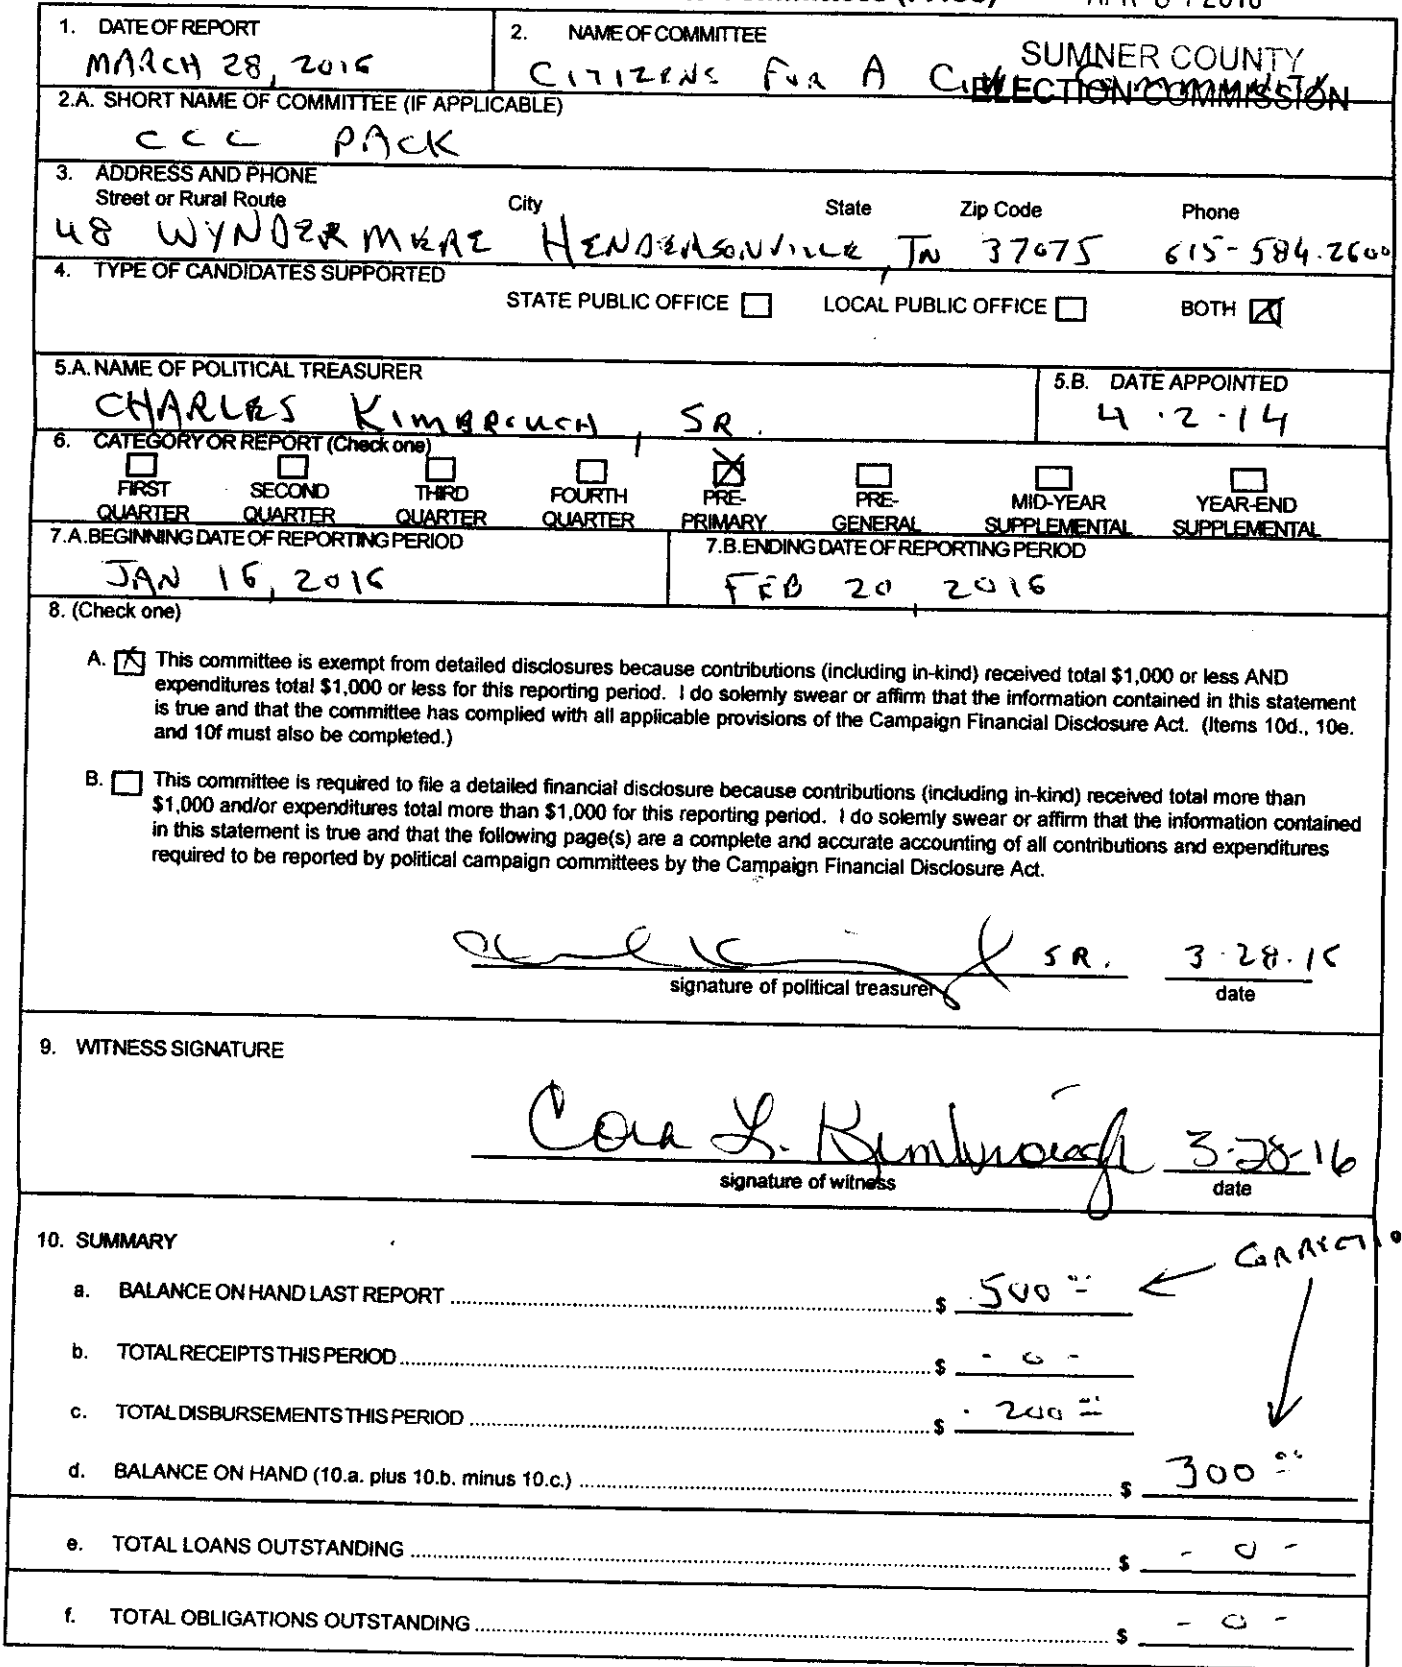 1. DATE OF REPORT
MARCH 28, 2016
2. NAME OF COMMITTEE
CITIZENS FOR A
SUMNER COUNTY
ELECTION COMMISSION
2.A. SHORT NAME OF COMMITTEE (IF APPLICABLE)
CCC PACK
3. ADDRESS AND PHONE
Street or Rural Route City State Zip Code Phone
48 WYNDERMERE HENDERSONVILLE, TN 37075 615-584.2600
4. TYPE OF CANDIDATES SUPPORTED
STATE PUBLIC OFFICE LOCAL PUBLIC OFFICE BOTH
5.A. NAME OF POLITICAL TREASURER
CHARLES KIMBROUGH, SR.
5.B. DATE APPOINTED
4.2.14
6. CATEGORY OR REPORT (Check one)
FIRST QUARTER
SECOND QUARTER
THIRD QUARTER
FOURTH QUARTER
PRE-PRIMARY
PRE-GENERAL
MID-YEAR SUPPLEMENTAL
YEAR-END SUPPLEMENTAL
7.A. BEGINNING DATE OF REPORTING PERIOD
JAN 16, 2016
7.B. ENDING DATE OF REPORTING PERIOD
FEB 20, 2016
8. (Check one)
A. This committee is exempt from detailed disclosures because contributions (including in-kind) received total $1,000 or less AND
expenditures total $1,000 or less for this reporting period. I do solemly swear or affirm that the information contained in this statement
is true and that the committee has complied with all applicable provisions of the Campaign Financial Disclosure Act. (Items 10d., 10e.
and 10f must also be completed.)
B. This committee is required to file a detailed financial disclosure because contributions (including in-kind) received total more than
$1,000 and/or expenditures total more than $1,000 for this reporting period. I do solemly swear or affirm that the information contained
in this statement is true and that the following page(s) are a complete and accurate accounting of all contributions and expenditures
required to be reported by political campaign committees by the Campaign Financial Disclosure Act.
SR. 3.28.16
signature of political treasurer date
9. WITNESS SIGNATURE
Cora L. Kimbrough 3-28-16
signature of witness date
10. SUMMARY
a. BALANCE ON HAND LAST REPORT $ 500 00
b. TOTAL RECEIPTS THIS PERIOD $ - 0 -
c. TOTAL DISBURSEMENTS THIS PERIOD $ 200 00
d. BALANCE ON HAND (10.a. plus 10.b. minus 10.c.) $ 300 00
e. TOTAL LOANS OUTSTANDING $ - 0 -
f. TOTAL OBLIGATIONS OUTSTANDING $ - 0 -